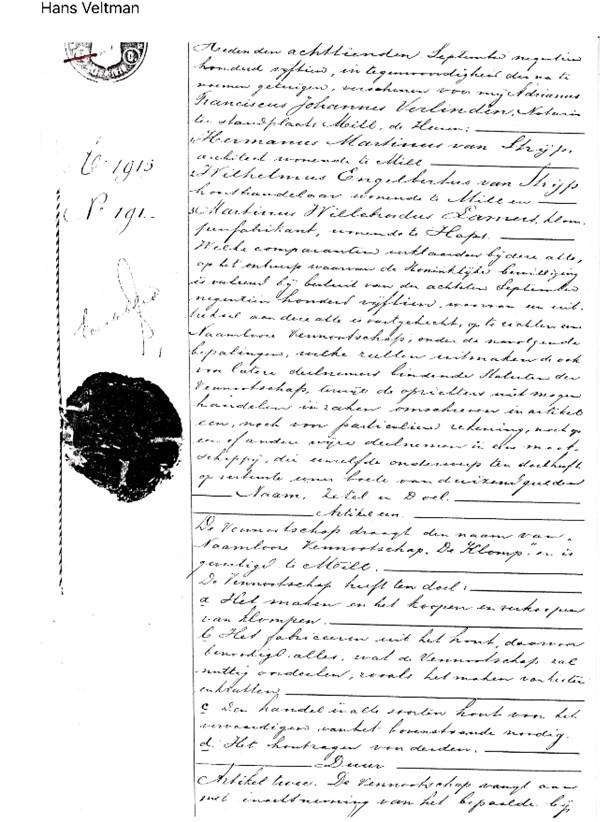 Hans Veltman
Heden den achttienden September negentien
honderd vijftien, in tegenwoordigheid der na te
noemen getuigen, verschenen voor mij Adrianus
Franciscus Johannes Verlinden, Notaris
ter standplaats Mill, de Heeren:
1 Hermanus Martinus van Strijp,
architect wonende te Mill
2 Wilhelmus Engelbertus van Strijp
houthandelaar wonende te Mill en
3 Martinus Willebrodus Lamers, klom-
penfabrikant, wonende te Haps.
Welke comparanten verklaarden bij deze alle,
op het ontwerp waarvan de Koninklijke bewilliging
is verleend bij besluit van den achtsten September
negentien honderd vijftien, waarvan een uit-
treksel aan deze akte is vastgehecht, op te richten eene
Naamlooze Vennootschap, onder de navolgende
bepalingen, welke zullen uitmaken de ook
voor latere deelnemers bindende Statuten der
Vennootschap, terwijl de oprichters niet mogen
handelen in zaken omschreven in artikel
een, noch voor particuliere rekening, noch op
een of andere wijze deelnemen in een maat-
schappij, die eenzelfde onderwerp ten doel heeft
op verbeurte eener boete van duizend gulden
Naam. Zetel en Doel.
Artikel een.
De Vennootschap draagt den naam van
Naamlooze Vennootschap "De Klomp" en is
gevestigd te Mill.
De Vennootschap heeft ten doel:
a Het maken en het koopen en verkoopen
van klompen.
b Het fabriceeren uit het hout, daarvoor
benoodigd, alles, wat de Vennootschap zal
nuttig oordeelen, zooals het maken van kisten
en kratten
c Den handel in alle soorten hout voor het
vervaardigen van het bovenstaande noodig.
d. Het houtzagen voor derden.
Duur
Artikel twee. De Vennootschap vangt aan
met inachtneming van het bepaalde bij
1915
No 191.